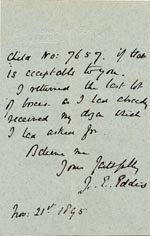 Child No: 7657. if that
is acceptable to you.
I returned the last lot
of boxes. as I had already
received my dozen which
I had asked for.
Believe me
Yours faithfully
J. E. Eddis
Nov: 21st 1895